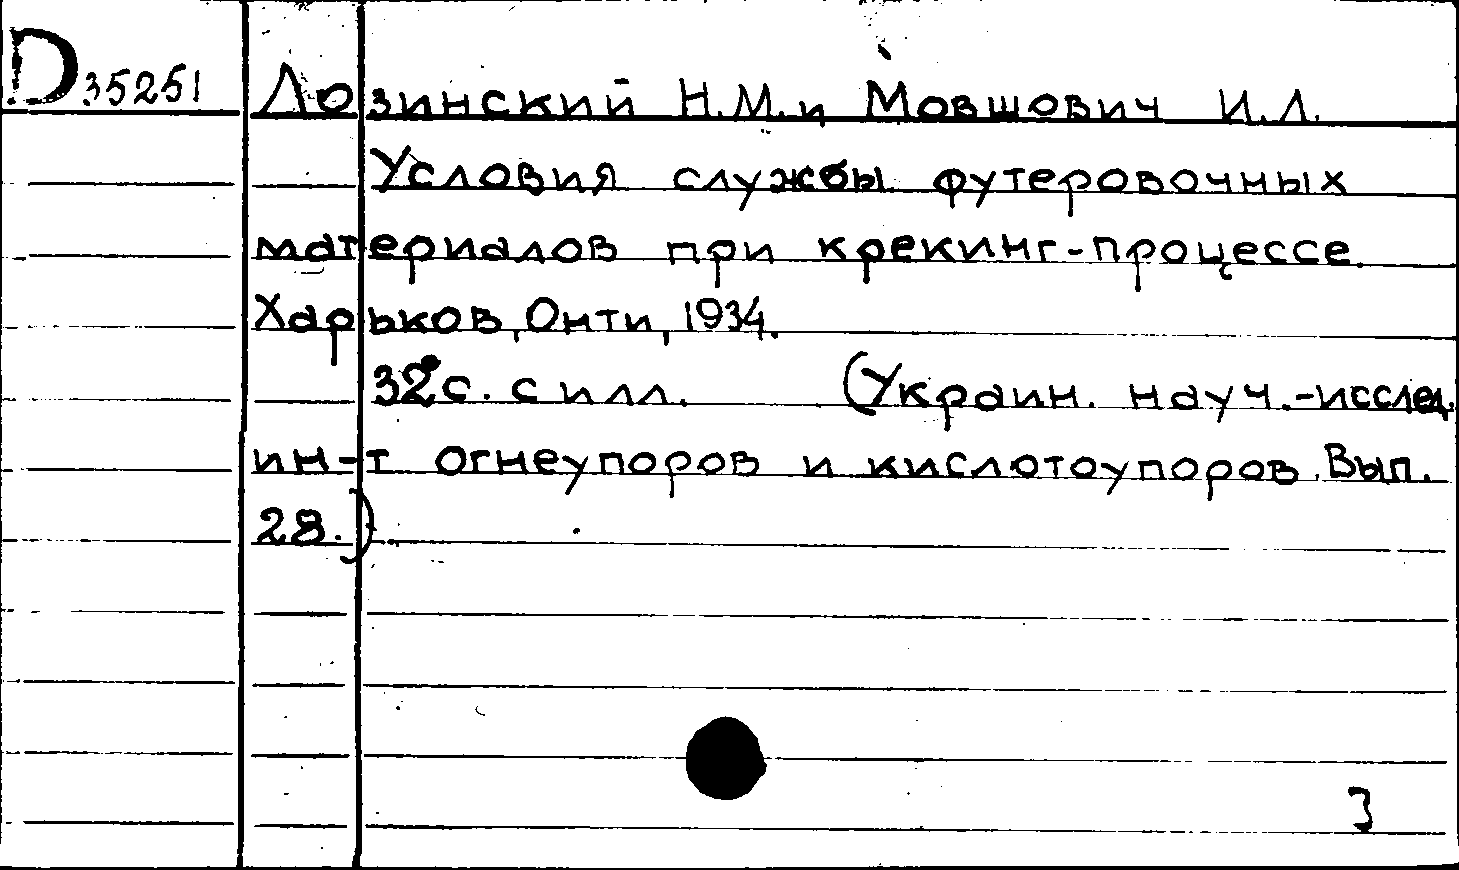 D 35251 Лозинский Н.М. и Мовшович И.Л.
Условия службы футеровочных
материалов при крекинг-процессе.
Харьков, Онти, 1934.
32 с. с илл. (Украин. науч.-исслед.
ин-т огнеупоров и кислотоупоров. Вып.
28.).
3